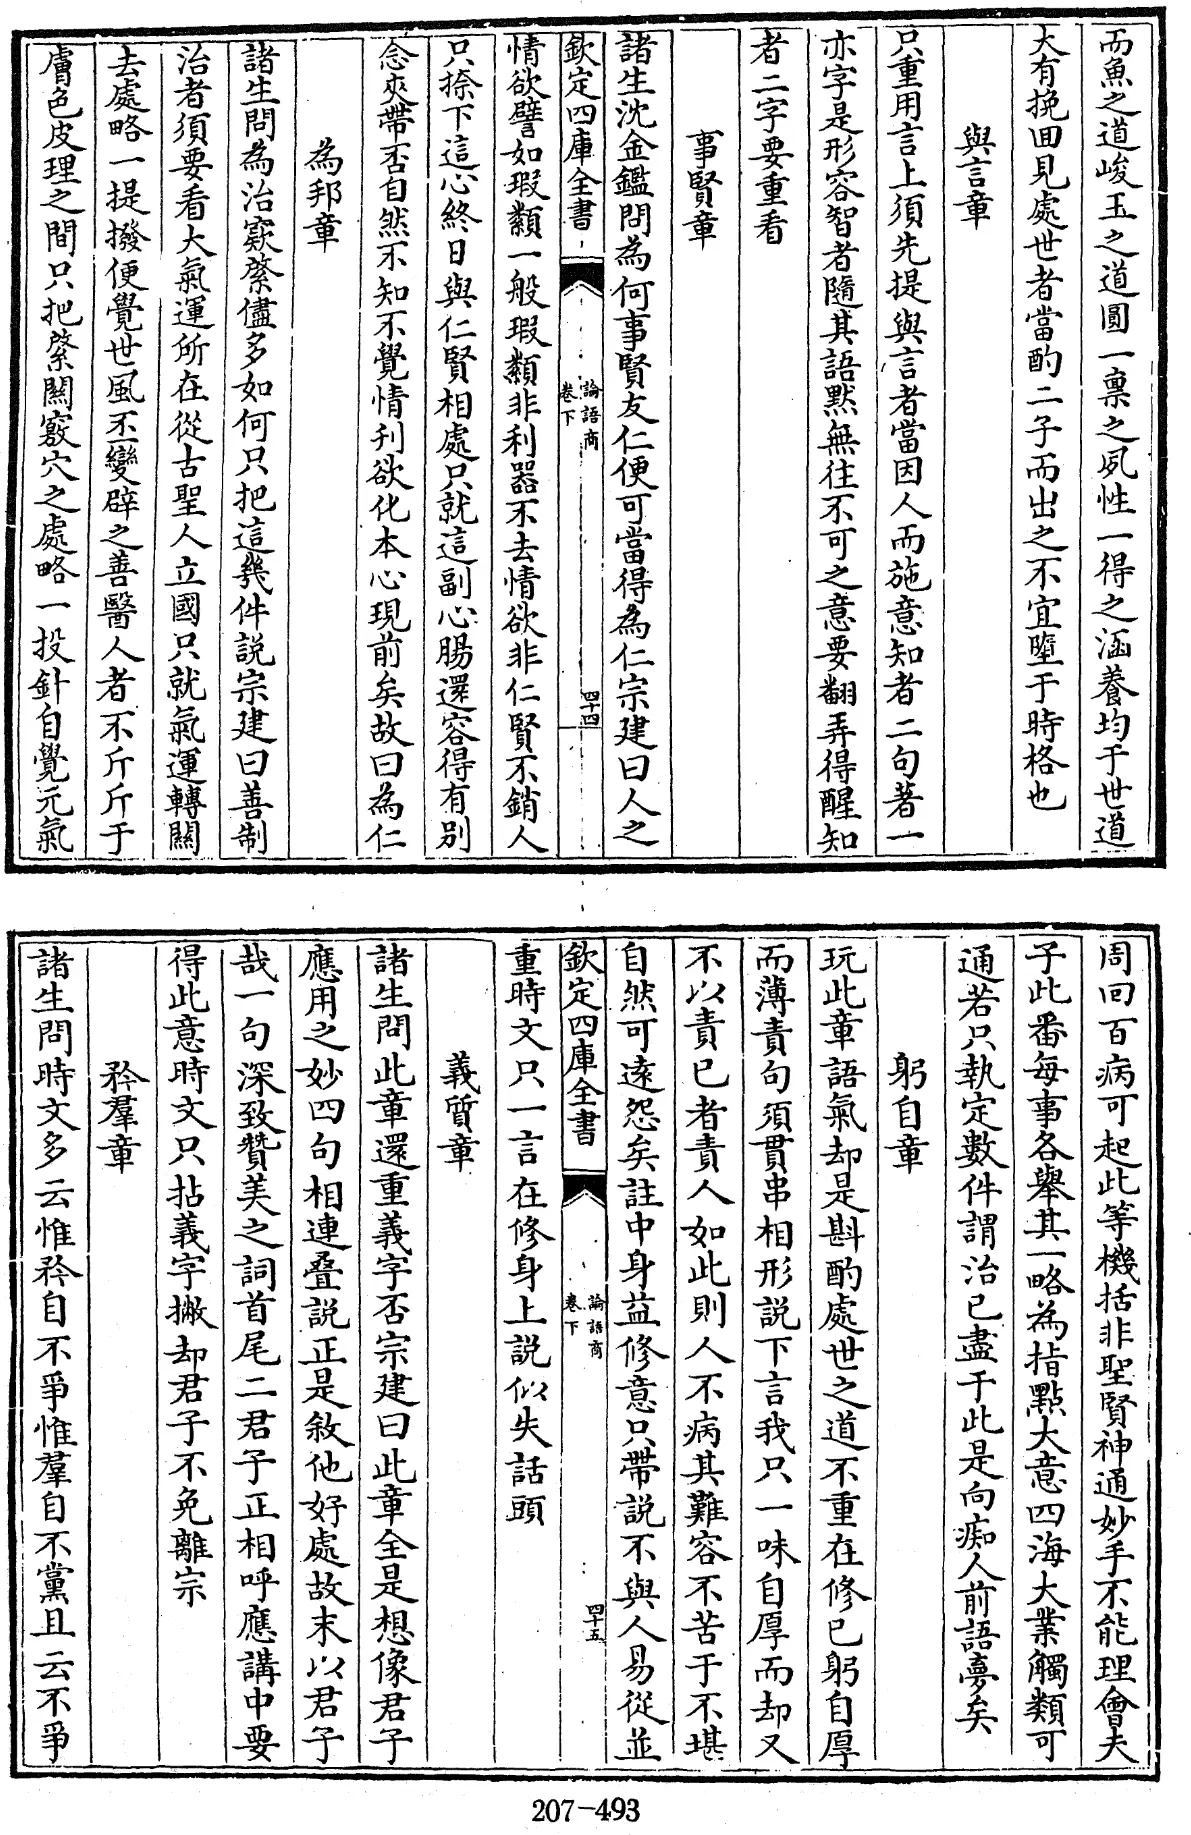 而魚之道峻玉之道圓一禀之夙性一得之涵養均于世道
大有挽回見處世者當酌二子而出之不宜墮于時格也
與言章
只重用言上須先提與言者當因人而施意知者二句著一
亦字是形容智者隨其語默無往不可之意要翻弄得醒知
者二字要重看
事賢章
諸生沈金鑑問為何事賢友仁便可當得為仁宗建曰人之
欽定四庫全書
論語商
卷下
四十四
情欲譬如瑕纇一般瑕纇非利器不去情欲非仁賢不銷人
只捺下這心終日與仁賢相處只就這副心腸還容得有别
念夾帶否自然不知不覺情刋欲化本心現前矣故曰為仁
為邦章
諸生問為治窾綮儘多如何只把這幾件説宗建曰善制
治者須要看大氣運所在從古聖人立國只就氣運轉關
去處略一提撥便覺世風丕變辟之善醫人者不斤斤于
膚色皮理之間只把綮關竅穴之處略一投針自覺元氣
周回百病可起此等機括非聖賢神通妙手不能理會夫
子此番每事各舉其一略為指點大意四海大業觸類可
通若只執定數件謂治已盡于此是向痴人前語夢矣
躬自章
玩此章語氣却是斟酌處世之道不重在修已躬自厚
而薄責句須貫串相形説下言我只一味自厚而却又
不以責已者責人如此則人不病其難容不苦于不堪
自然可遠怨矣註中身益修意只帶説不與人易從並
欽定四庫全書
論語商
卷下
四十五
重時文只一言在修身上説似失話頭
義質章
諸生問此章還重義字否宗建曰此章全是想像君子
應用之妙四句相連疊説正是敘他好處故末以君子
哉一句深致贊美之詞首尾二君子正相呼應講中要
得此意時文只拈義字撇却君子不免離宗
矜羣章
諸生問時文多云惟矜自不爭惟羣自不黨且云不爭
207-493